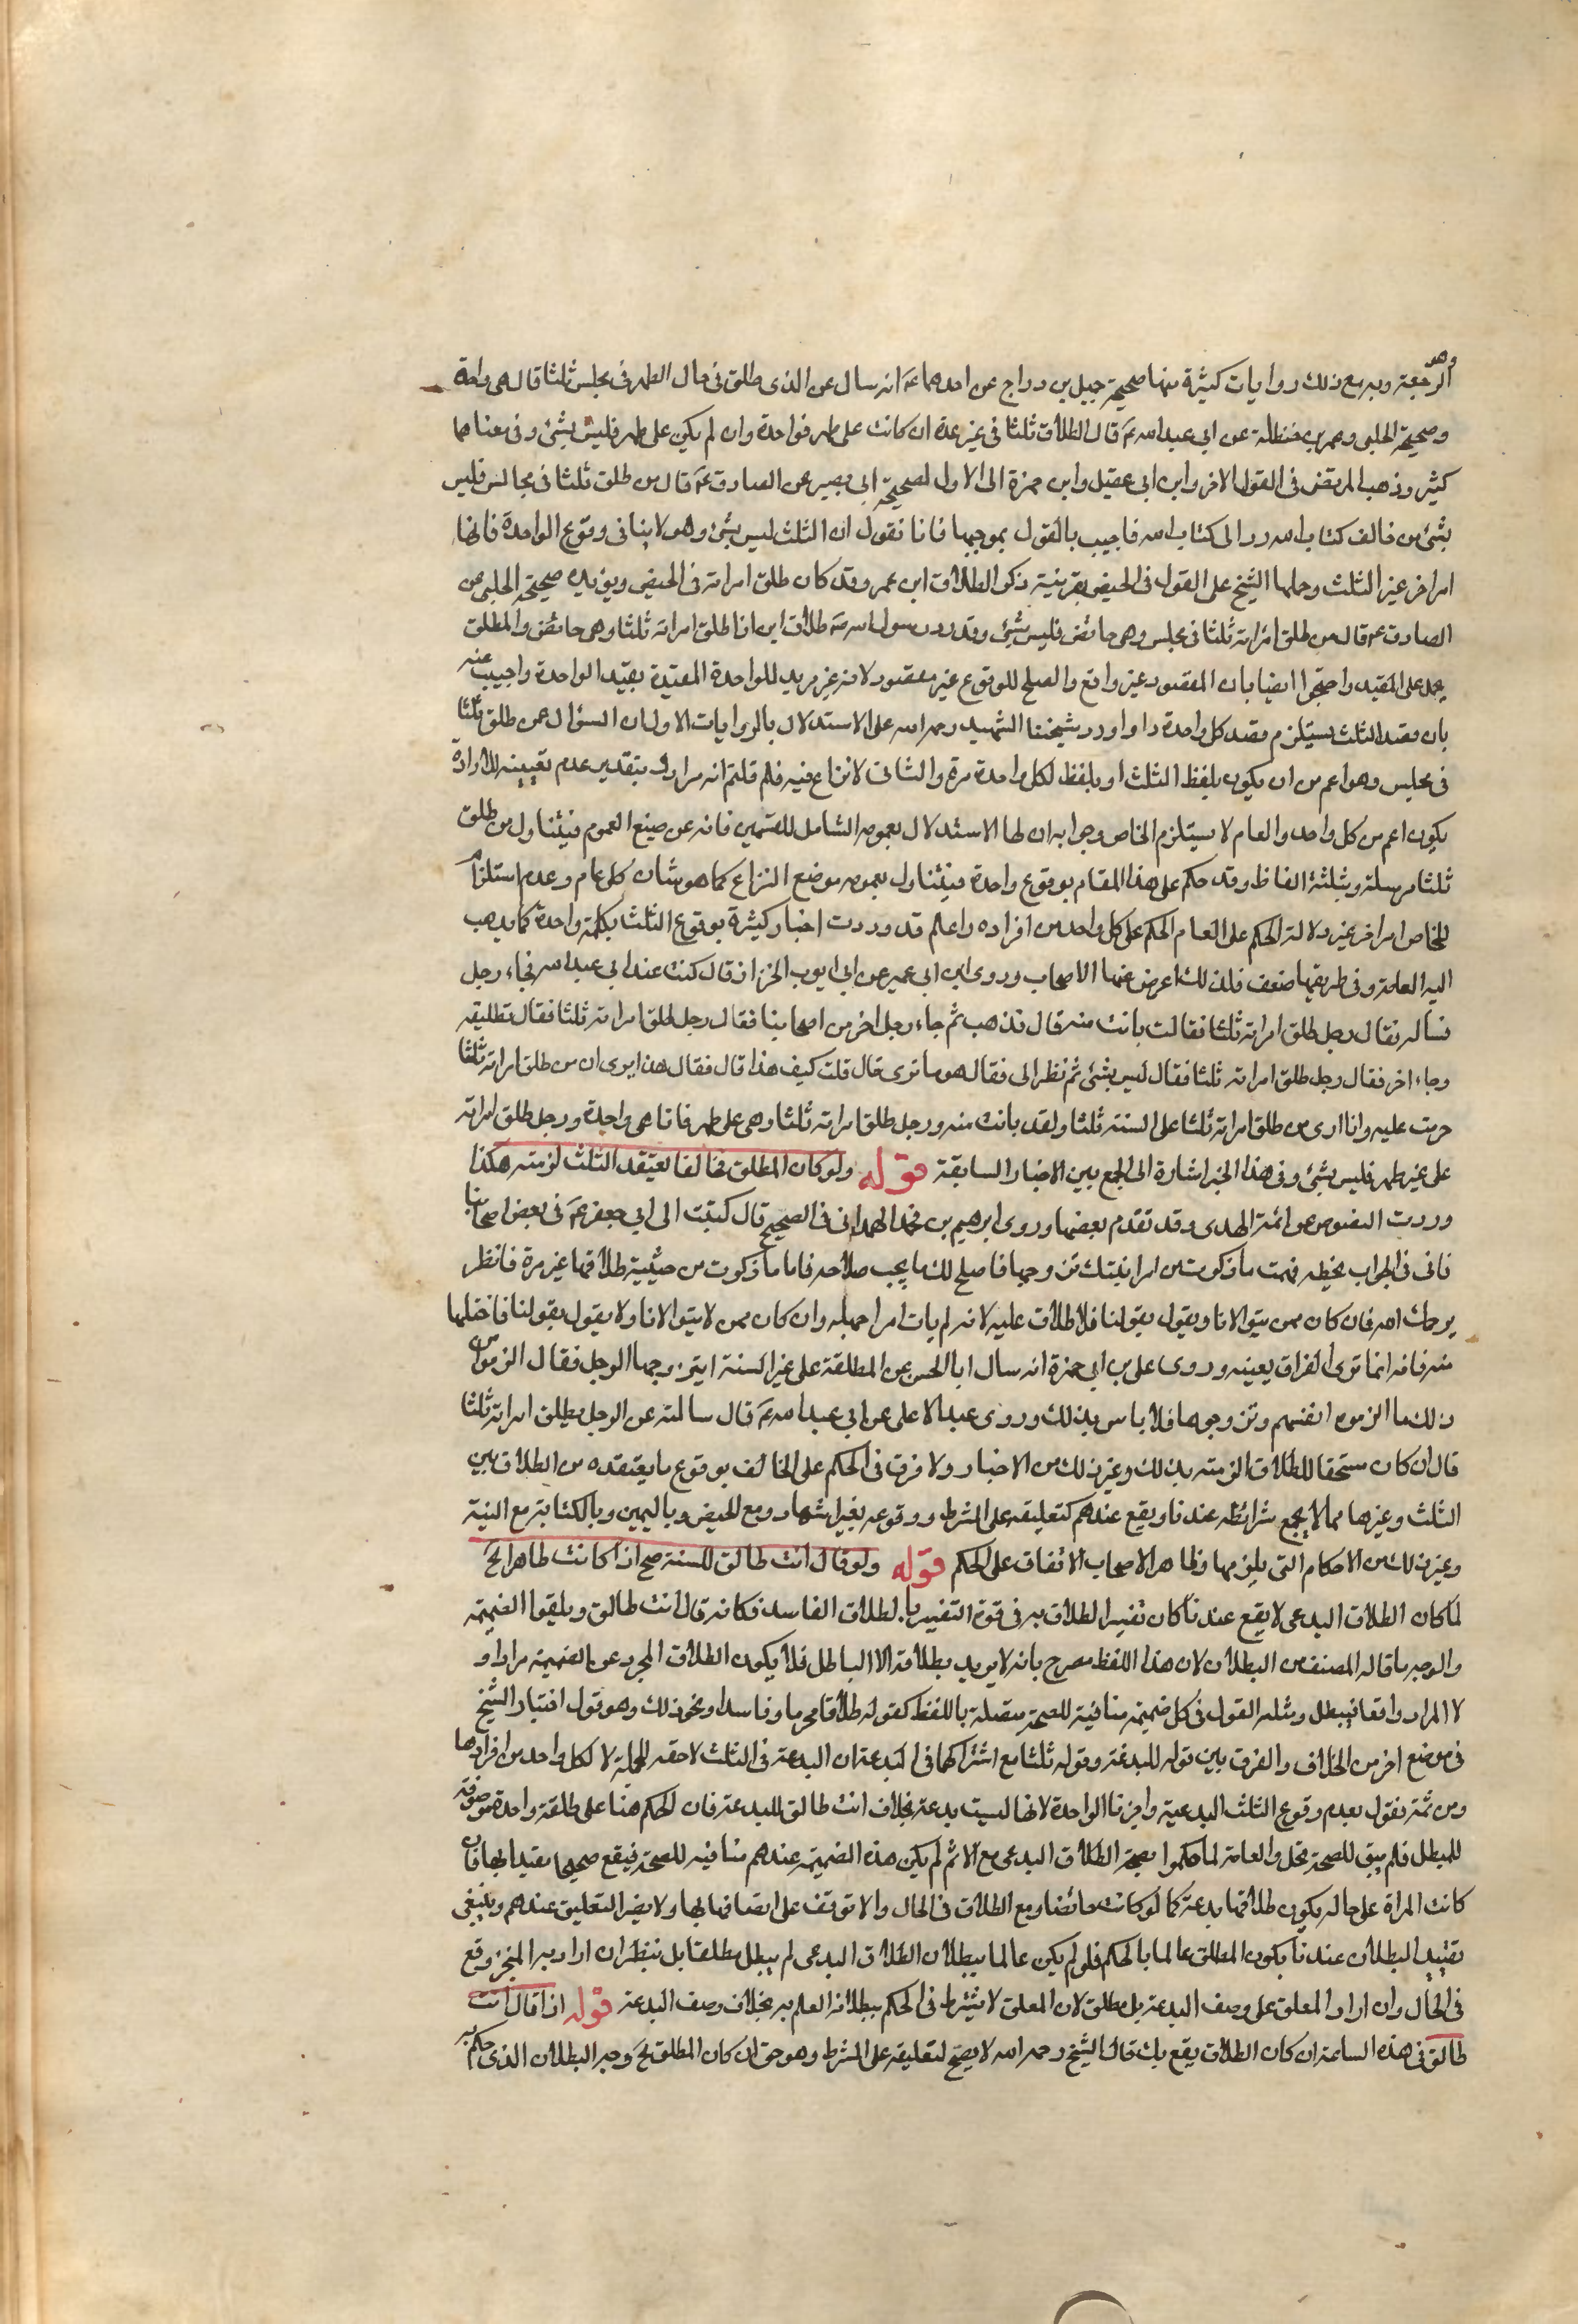 الرجعة وهو وبه مع ذلك روايات كثيرة منها صحيحة جميل بن دراج عن احدهما عَ انه سال عن الذى طلق فى حال الطهر فى مجلس ثلثا قال هى واحدة
وصحيحة الحلبى وعمر بن حنظلة عن ابى عبد الله عَ قال الطلاق ثلثا فى غير عدة ان كانت على طهر فواحدة وان لم يكن على طهر فليس بشئ وفى معناهما
كثير وذهب المرتضى فى القول الاخر وابن ابى عقيل وابن حمزة الى الاول لصحيحة ابى بصير عن الصادق عَ قال من طلق ثلثا فى مجالس فليس
بشئ من خالف كتاب الله رد الى كتاب الله فاجيب بالقول بموجبها فانا نقول ان الثلث ليس بشئ وهو لا ينافى وقوع الواحدة فانها
امر اخر غير الثلث وحملها الشيخ على القول فى الحيض بقرينة ذكر الطلاق ابن عمر وقد كان طلق امراته فى الحيض ويؤيده صحيحة الحلبى عن
الصادق عَ قال من طلق امراته ثلثا فى مجلس وهى حائض فليس بشئ وقد رد رسول الله صَ طلاق ابن اذا طلق امراته ثلثا وهى حائض والمطلق
يحمل على المقيد واحتجوا ايضا بان المقصود غير واقع والصالح للوقوع غير مقصود لانه غير مريد للواحدة المقيدة بقيد الواحدة واجيب عنه
بان قصد الثلث يستلزم قصد كل واحدة واورد شيخنا الشهيد رحمه الله على الاستدلال بالروايات الاول ان السؤال عمن طلق ثلثا
فى مجلس وهو اعم من ان يكون بلفظ الثلث او بلفظ لكل واحدة مرة والثانى لا نزاع فيه فلم قلتم انه مراد وبتقدير عدم تعيينه للارادة
يكون اعم من كل واحد والعام لا يستلزم الخاص وجوابه ان لها الاستدلال بعمومه الشامل للقسمين فانه عن صيغ العموم فيتناول من طلق
ثلثا مرسلة وبثلثة الفاظ وقد حكم على هذا المقام بوقوع واحدة فيتناول بعمومه موضع النزاع كما هو شان كل عام وعدم استلزام
للخاص امر اخر غير دلالة الحكم على العام الحكم على كل واحد من افراده واعلم قد وردت اخبار كثيرة بوقوع الثلث بكلمة واحدة كما يذهب
اليه العامة وفى طريقها ضعف فلذلك اعرض عنها الاصحاب وروى ابن ابى عمير عن ابى ايوب الخزاز قال كنت عند ابى عبد الله فجاء رجل
فساله فقال رجل طلق امراته ثلثا فقالت بانت منه قال فذهب ثم جاء رجل اخر من اصحابنا فقال رجل طلق امراته ثلثا فقال تطليقه
وجاء اخر فقال رجل طلق امراته ثلثا فقال ليس بشئ ثم نظر الى فقال هو ما ترى قال قلت كيف هذا قال فقال هذا يرى ان من طلق امراته ثلثا
حرمت عليه وانا ارى من طلق امراته ثلثا على السنة ثلثا ولقد بانت منه ورجل طلق امراته ثلثا وهى على طهر فانما هى واحدة ورجل طلق امراته
على غير طهر فليس بشئ وفى هذا الخبر اشارة الى الجمع بين الاخبار السابقة قوله ولو كان المطلق مخالفا يعتقد الثلث لزمته هكذا
وردت النصوص عن ائمة الهدى وقد تقدم بعضها وروى ابرهيم بن محمد الهمدانى فى الصحيح قال كتبت الى ابى جعفر عَ فى بعض اصحابنا
فاتى فى الجواب بخطه فهمت ما ذكرت من امر ابنتك تزوجها فاصلح لك ما يحب صلاحه فاما ما ذكرت من حيثية طلاقها غير مرة فانظر
يرحمك الله فان كان ممن يتولانا ويقول بقولنا فلا طلاق عليه لانه لم يات امرا جهله وان كان ممن لا يتولانا ولا يقول بقولنا فاختلعها
منه فانه انما نوى الفراق بعينه وروى على بن ابى حمزة انه سال ابا الحسن عن المطلقة على غير السنة ايتزوجها الرجل فقال الزموهن
ذلك ما الزموه انفسهم وتزوجوها فلا باس بذلك وروى عبد الاعلى عن ابى عبد الله عَ قال سالته عن الرجل يطلق امراته ثلثا
قال ان كان مستخفا للطلاق الزمته بذلك وغير ذلك من الاخبار ولا فرق فى الحكم على المخالف بوقوع ما يعتقده من الطلاق بين
الثلث وغيرها مما لا يجمع شرائطه عندنا ويقع عندهم كتعليقه على الشرط ووقوعه بغير اشهاد ومع الحيض وباليمين وبالكتابة مع النية
وغير ذلك من الاحكام التى يلزمها وظاهر الاصحاب الاتفاق على الحكم قوله ولو قال انت طالق للسنة صح اذا كانت طاهرا الخ
لما كان الطلاق البدعى لا يقع عندنا كان تفسير الطلاق به فى قوة التفسير بالطلاق الفاسد فكانه قال انت طالق ويلقوا الضميمة
والوجه ما قاله المصنف من البطلان لان هذا اللفظ مصرح بانه لا يريد بطلاقه الا الباطل فلا يكون الطلاق المجرد عن الضميمة مرادا و
لا المراد واقعا فيبطل ومثله القول فى كل ضميمة منافية للصحة متصلة باللفظ كقوله طلاقا محرما وفاسدا ونحو ذلك وهو قول اختيار الشيخ
فى موضع اخر من الخلاف والفرق بين قوله للبدعة وقوله ثلثا مع اشتراكهما فى البدعة ان البدعة فى الثلث لاحقه للجملة لا لكل واحد من افرادها
ومن ثمة نقول بعدم وقوع الثلث البدعية واجزنا الواحدة لانها ليست بدعة بخلاف انت طالق للبدعة فان الحكم هنا على طلقة واحدة موصوفة
للمبطل فلم يبق للصحة محل والعامة لما حكموا بصحة الطلاق البدعى مع الاثم لم يكن هذه الضميمة عندهم منافيه للصحة فيقع صحيحا مقيدا بها فان
كانت المراة على حاله يكون طلاقها بدعة كما لو كانت حائضا ومع الطلاق فى الحال والا توقف على اتصافها بها ولا يضر التعليق عندهم وينبغى
تقييد البطلان عندنا بكون المطلق عالما بالحكم فلو لم يكن عالما ببطلان الطلاق البدعى لم يبطل مطلقا بل ينظر ان اراد به المنجز وقع
فى الحال وان اراد المعلق على وصف البدعة بل مطلق لان المعلق لا يشترط فى الحكم ببطلانه العلم به بخلاف وصف البدعة قوله اذا قال انت
طالق فى هذه الساعة ان كان الطلاق يقع بك قال الشيخ رحمه الله لا يصح لتعليقه على الشرط وهو حق ان كان المطلق لخَ وجه البطلان الذى حكم به